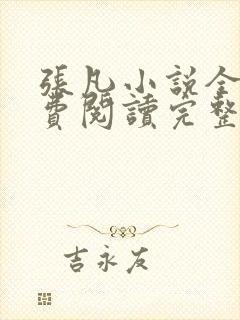 張凡小説全
費閱讀完整
吉永友